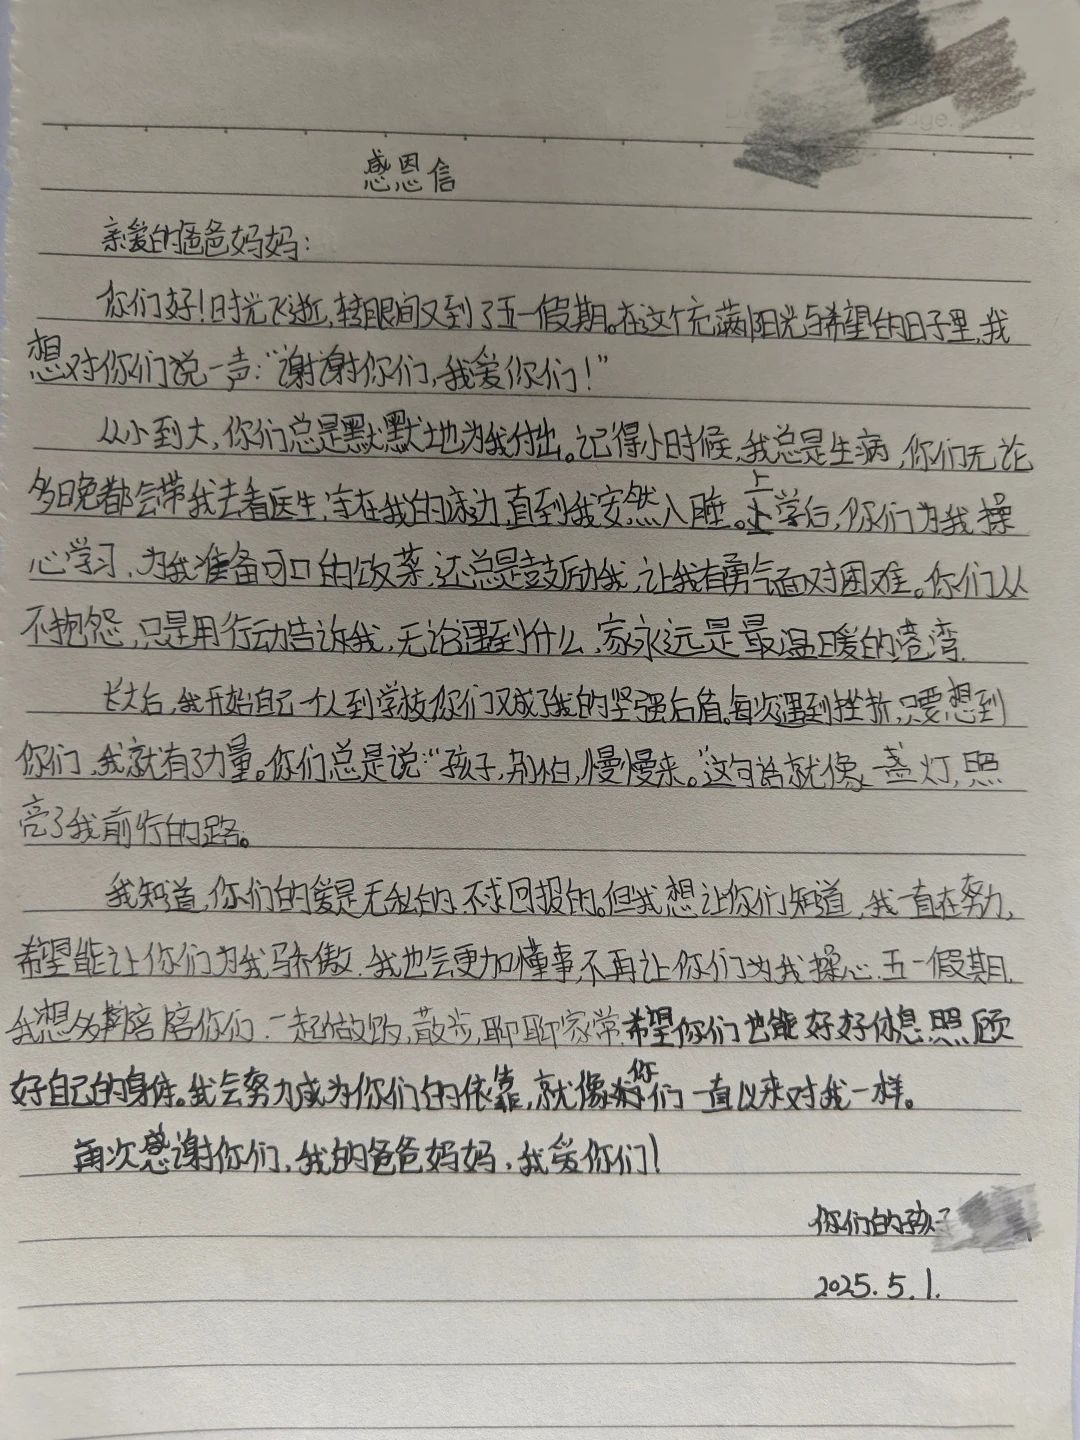 感恩信
亲爱的爸爸妈妈：
你们好！时光飞逝，转眼间又到了五一假期。在这个充满阳光与希望的日子里，我
想对你们说一声：“谢谢你们，我爱你们！”
从小到大，你们总是默默地为我付出。记得小时候，我总是生病，你们无论
多晚都会带我去看医生，守在我的床边，直到我安然入睡。上学后，你们为我操
心学习，为我准备可口的饭菜，还总是鼓励我，让我有勇气面对困难。你们从
不抱怨，只是用行动告诉我，无论遇到什么，家永远是最温暖的港湾.
长大后，我开始自己一个人到学校你们又成了我的坚强后盾。每次遇到挫折，只要想到
你们，我就有了力量。你们总是说：“孩子，别怕，慢慢来。”这句话就像一盏灯，照
亮了我前行的路。
我知道，你们的爱是无私的，不求回报的。但我想让你们知道，我一直在努力，
希望能让你们为我骄傲.我也会更加懂事，不再让你们为我操心.五一假期，
我想多陪陪你们.一起做饭，散步，聊聊家常.希望你们也能好好休息照顾
好自己的身体。我会努力成为你们的依靠，就像你们一直以来对我一样。
再次感谢你们，我的爸爸妈妈，我爱你们！
你们的孩子
2025.5.1.